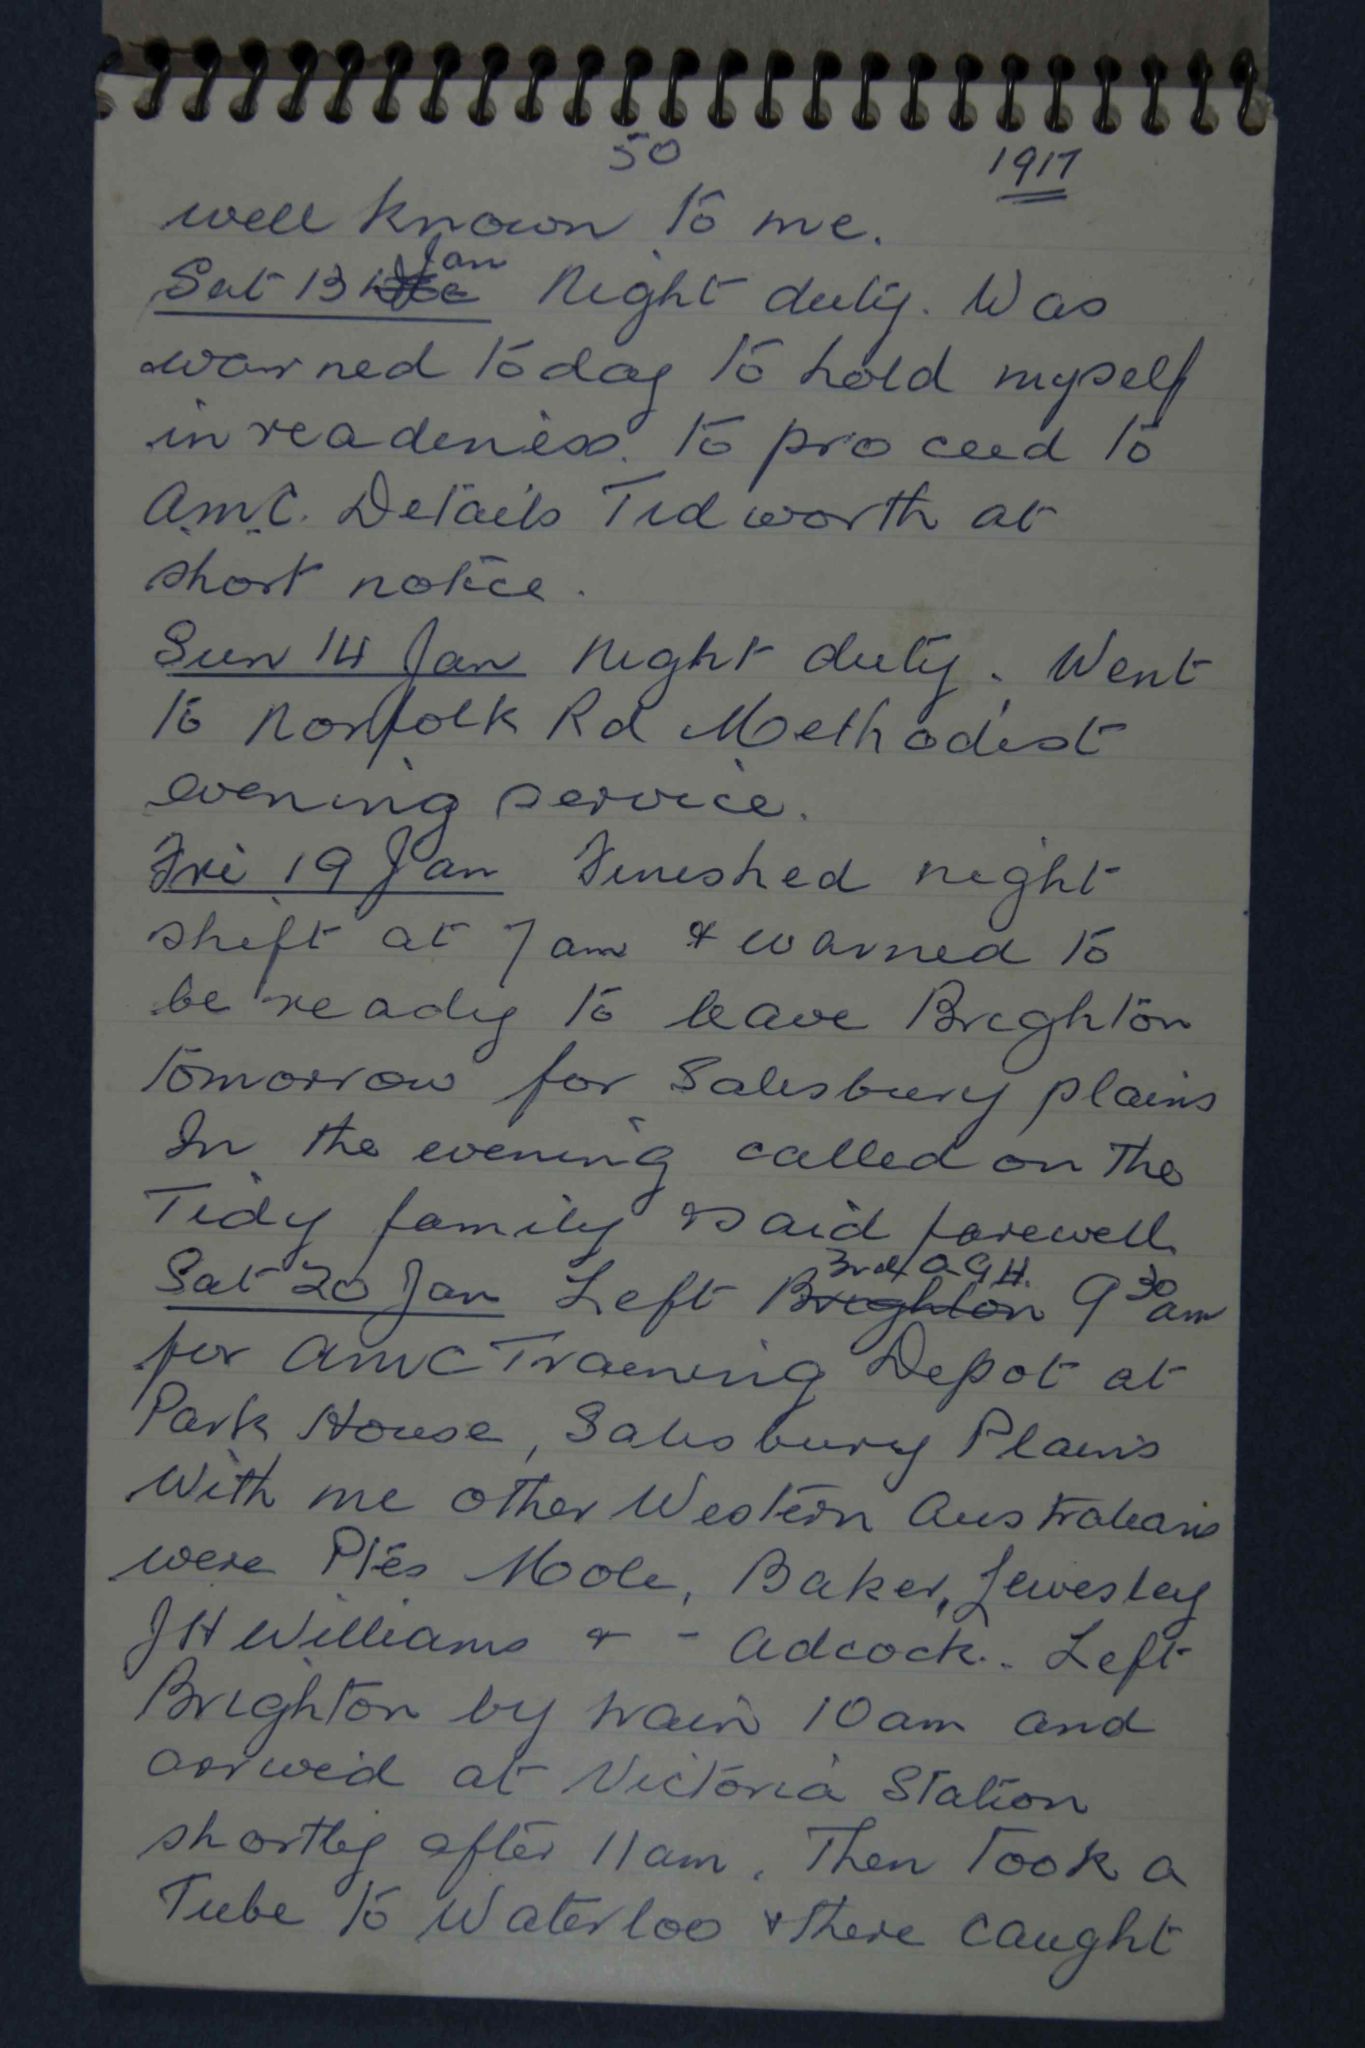 50 1917
well known to me.
Sat 13 Dec Jan Night duty. Was
warned today to hold myself
in readiness. to proceed to
A.M.C. Details Tidworth at
short notice.
Sun 14 Jan Night duty. Went
to Norfolk Rd Methodist
evening service.
Fri 19 Jan Finished night
shift at 7 am & warned to
be ready to leave Brighton
tomorrow for Salisbury plains
In the evening called on the
Tidy family & said farewell.
Sat 20 Jan Left Brighton 3rd AGH. 9 30 am
for AMC Training Depot at
Park House, Salisbury Plains
With me other Western Australians
were Ptes Mole, Baker, Lewesley
JH Williams & - Adcock. Left
Brighton by train 10 am and
arrived at Victoria Station
shortly after 11 am. Then took a
Tube to Waterloo & there caught